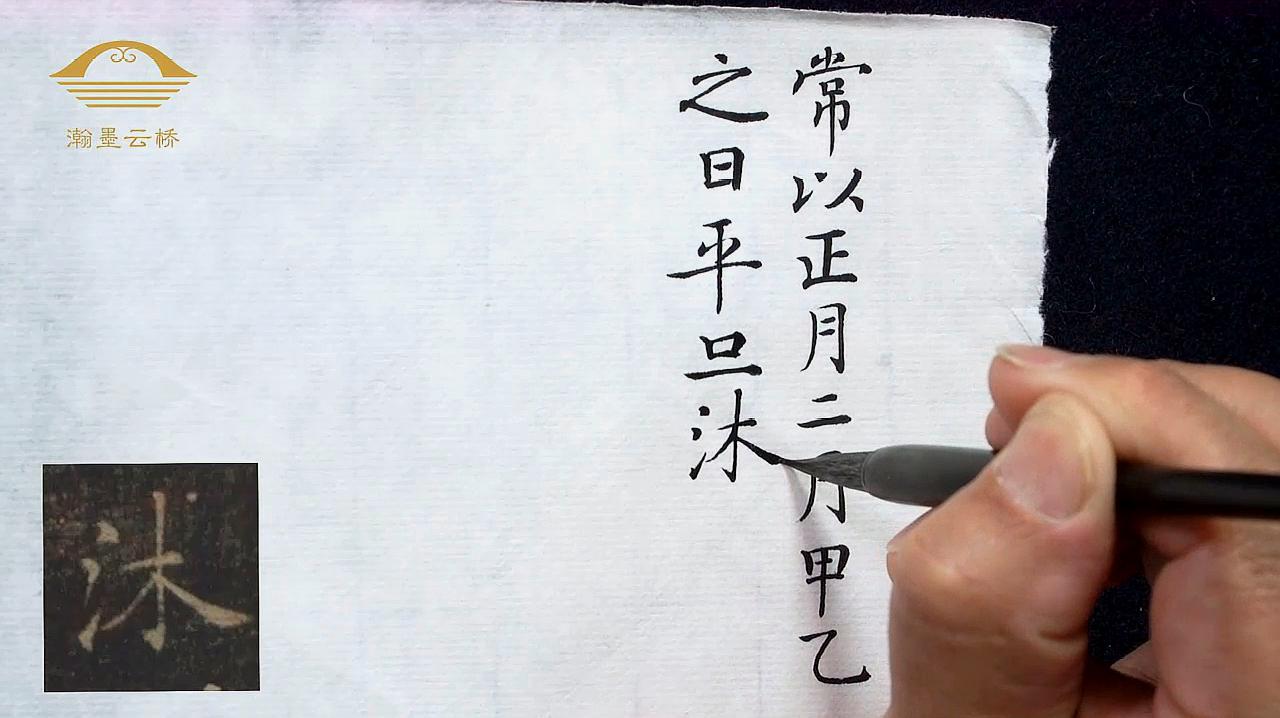 常以正月二月甲乙
之日平旦沐
瀚墨云桥
沐